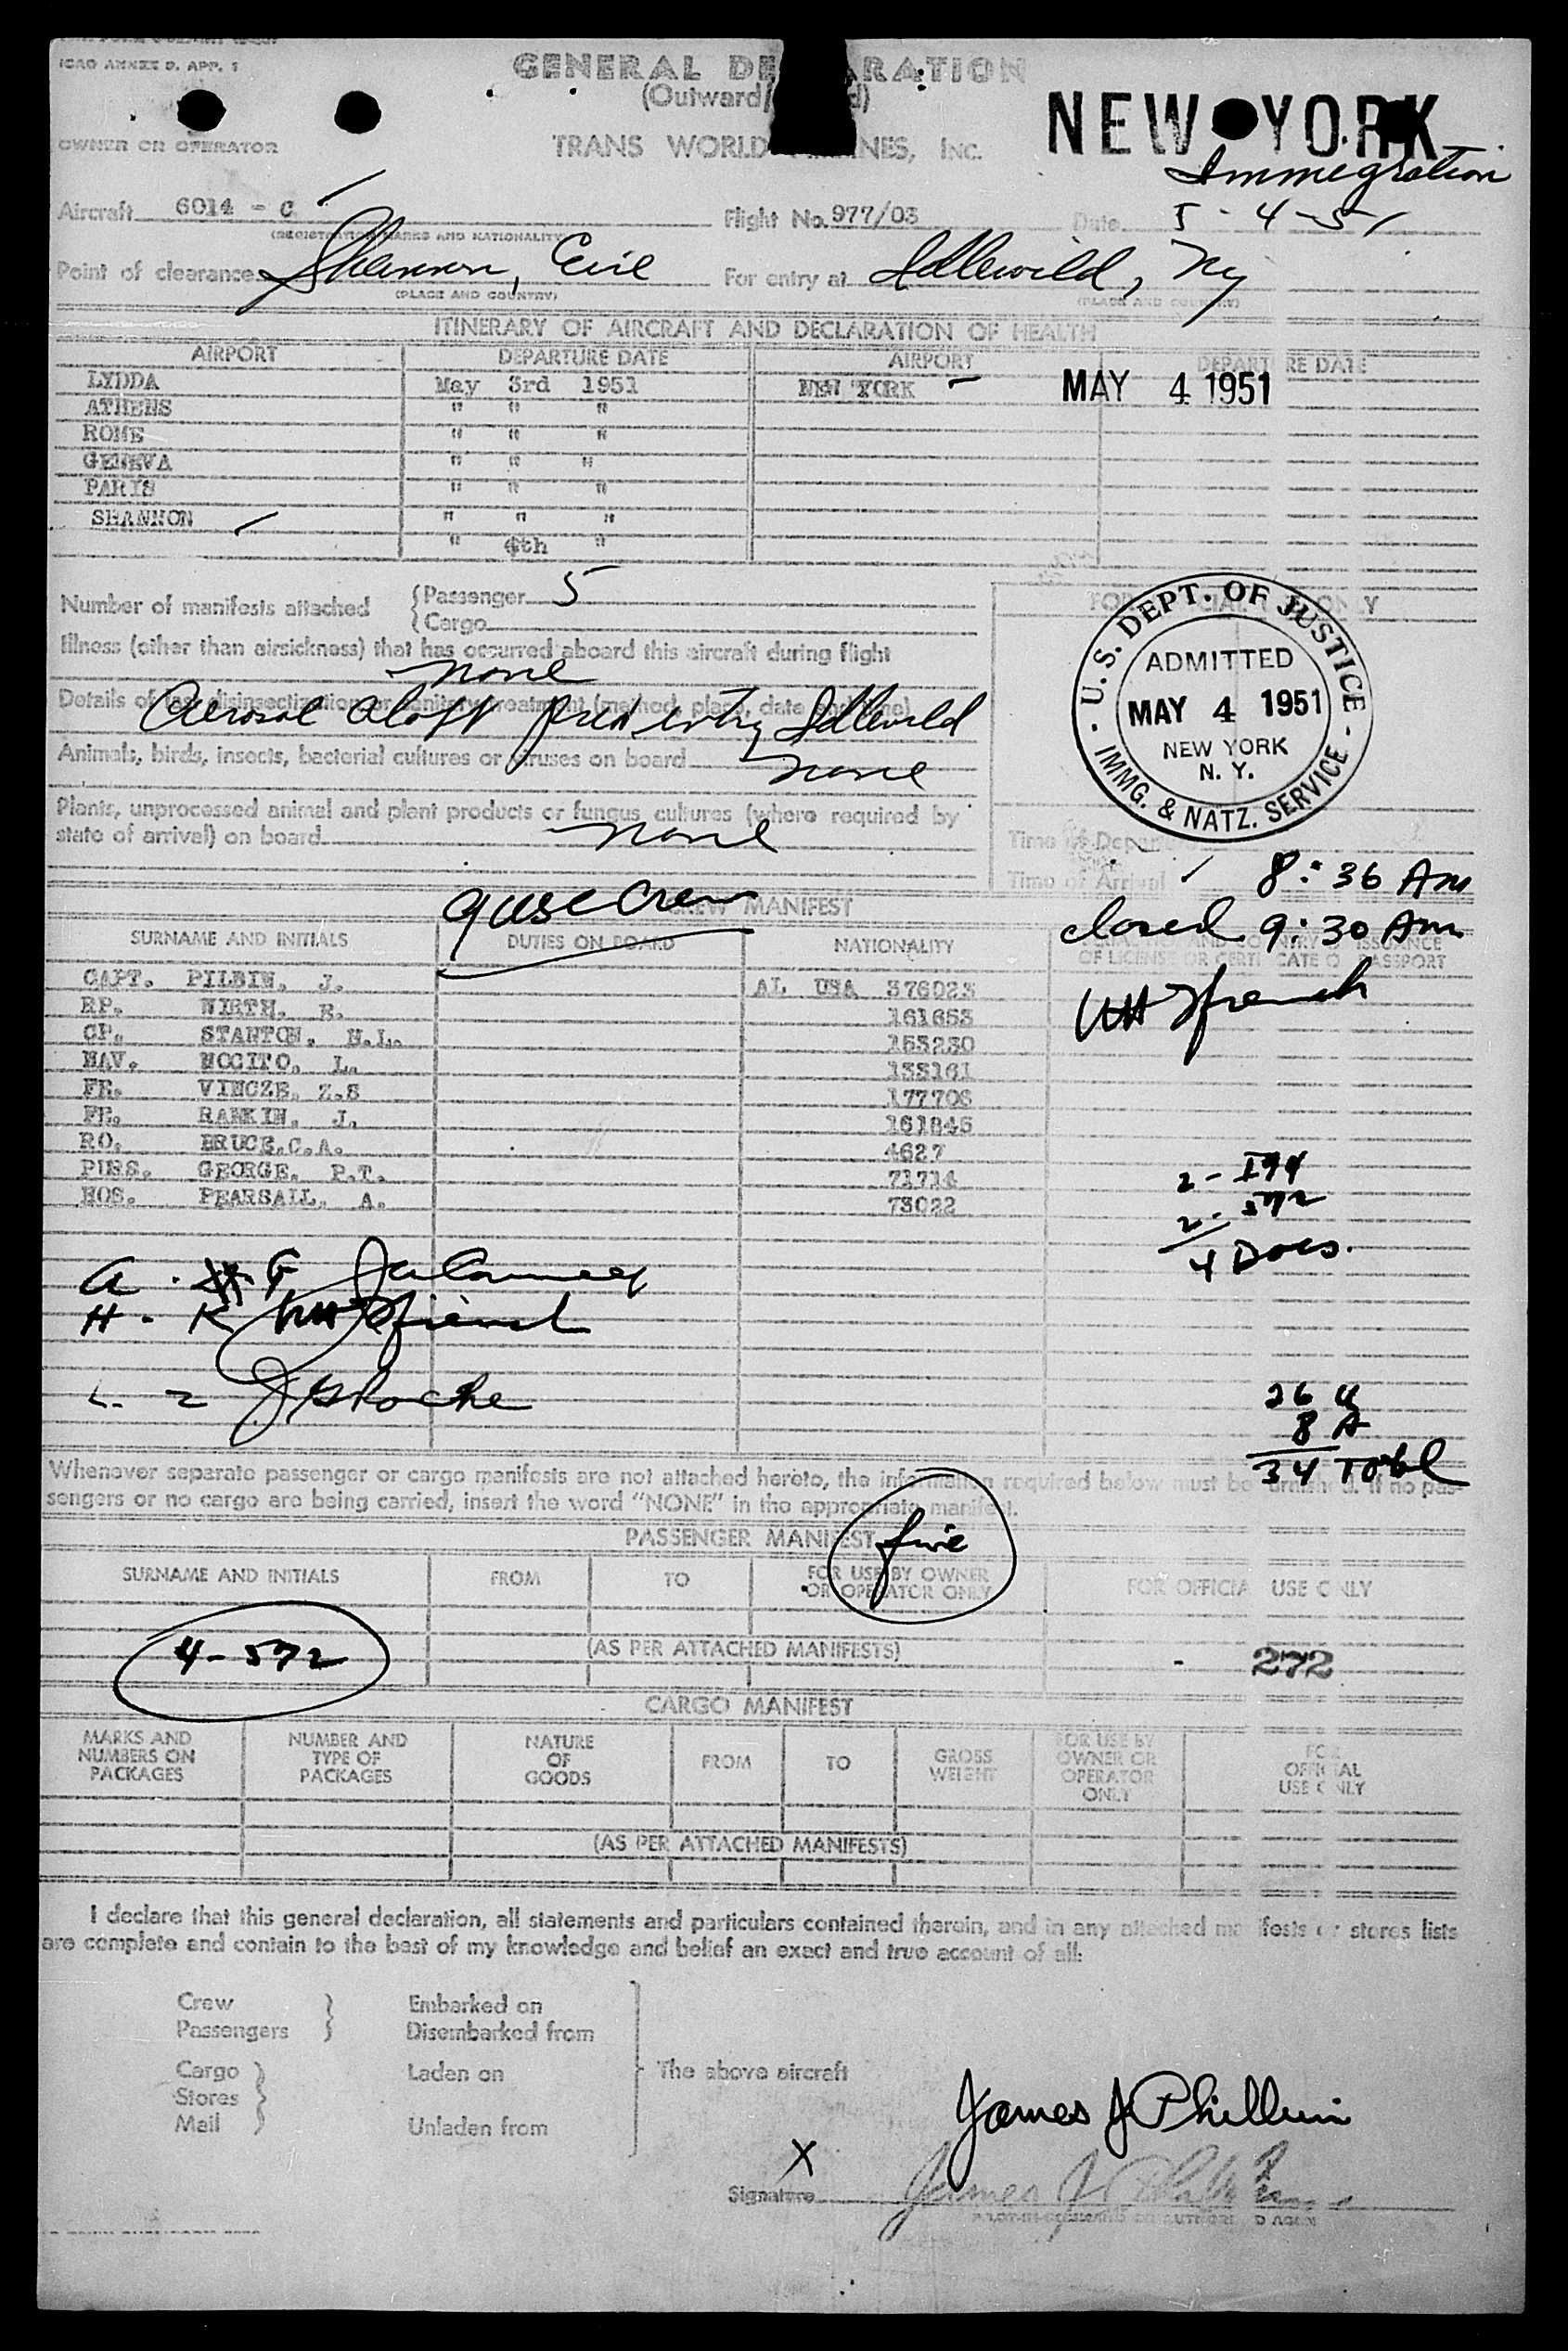 ICAO ANNEX 9. APP. 1
GENERAL DE ARATION
(Outward/ d)
OWNER OR OPERATOR
TRANS WORLD INES, INC.
NEW YORK
Immigration
Aircraft 6014 - C
(REGISTRATION MARKS AND NATIONALITY)
Flight No. 977/03
Date 5-4-51
Point of clearance Shannon, Eire
(PLACE AND COUNTRY)
For entry at Idlewild, Ny
(PLACE AND COUNTRY)
ITINERARY OF AIRCRAFT AND DECLARATION OF HEALTH
AIRPORT DEPARTURE DATE AIRPORT DEPARTURE DATE
LYDDA May 3rd 1951 NEW YORK MAY 4 1951
ATHENS " " "
ROME " " "
GENEVA " " "
PARIS " " "
SHANNON " " "
" 4th "
Number of manifests attached { Passenger 5
{ Cargo
Illness (other than airsickness) that has occurred aboard this aircraft during flight
none
Details of last disinsectization or sanitary treatment (method, place, date and time)
Aerosol aloft prior entry Idlewild
Animals, birds, insects, bacterial cultures or viruses on board none
Plants, unprocessed animal and plant products or fungus cultures (where required by
state of arrival) on board none
FOR OFFICIAL USE ONLY
U.S. DEPT. OF JUSTICE
ADMITTED
MAY 4 1951
NEW YORK
N. Y.
IMMG. & NATZ. SERVICE
Time of Departure
Time of Arrival 8:36 Am
closed 9:30 Am
9 use crew
CREW MANIFEST
SURNAME AND INITIALS DUTIES ON BOARD NATIONALITY
OF LICENSE OR CERTIFICATE OR PASSPORT
CAPT. PILBIN. J. AL USA 376023
RP. WIRTH. R. 161653
CP. STANTON. N.L. 153230
NAV. NOCITO. L. 133161
FE. VINCZE. Z.S 177706
FE. RANKIN. J. 161845
RO. BRUCE.C.A. 4627
PURS. GEORGE. P.T. 71714
HOS. PEARSALL. A. 73022
2 - I94
2 - 572
4 Docs.
A.
H. - K
L. - Z J Roche
26 U
8 A
34 Total
Whenever separate passenger or cargo manifests are not attached hereto, the information required below must be furnished. If no pas-
sengers or no cargo are being carried, insert the word "NONE" in the appropriate manifest.
PASSENGER MANIFEST
five
SURNAME AND INITIALS FROM TO FOR USE BY OWNER OR OPERATOR ONLY FOR OFFICIAL USE ONLY
4 - 572
(AS PER ATTACHED MANIFESTS)
- 272
CARGO MANIFEST
MARKS AND NUMBERS ON PACKAGES NUMBER AND TYPE OF PACKAGES NATURE OF GOODS FROM TO GROSS WEIGHT FOR USE BY OWNER OR OPERATOR ONLY FOR OFFICIAL USE ONLY
(AS PER ATTACHED MANIFESTS)
I declare that this general declaration, all statements and particulars contained therein, and in any attached manifests or stores lists
are complete and contain to the best of my knowledge and belief an exact and true account of all:
Crew } Embarked on
Passengers } Disembarked from
Cargo } Laden on } The above aircraft
Stores }
Mail } Unladen from
James J Philbin
X
Signature James J Philbin
PILOT-IN-COMMAND OR AUTHORIZED AGENT